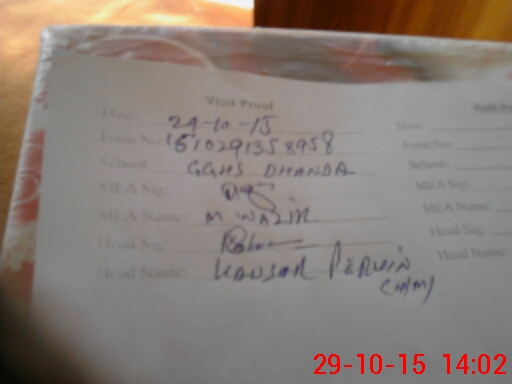 Visit Proof
Date: 29-10-15
Form No: 151029135 8958
School: GGHS DHANDA
MEA Sig:
MEA Name: M WAZIR
Head Sig:
Head Name: KAUSAR PERVIN
(H/M)
Visit
Date:
Form No:
School:
MEA Sig:
MEA Name:
Head Sig:
Head Name:
29-10-15 14:02